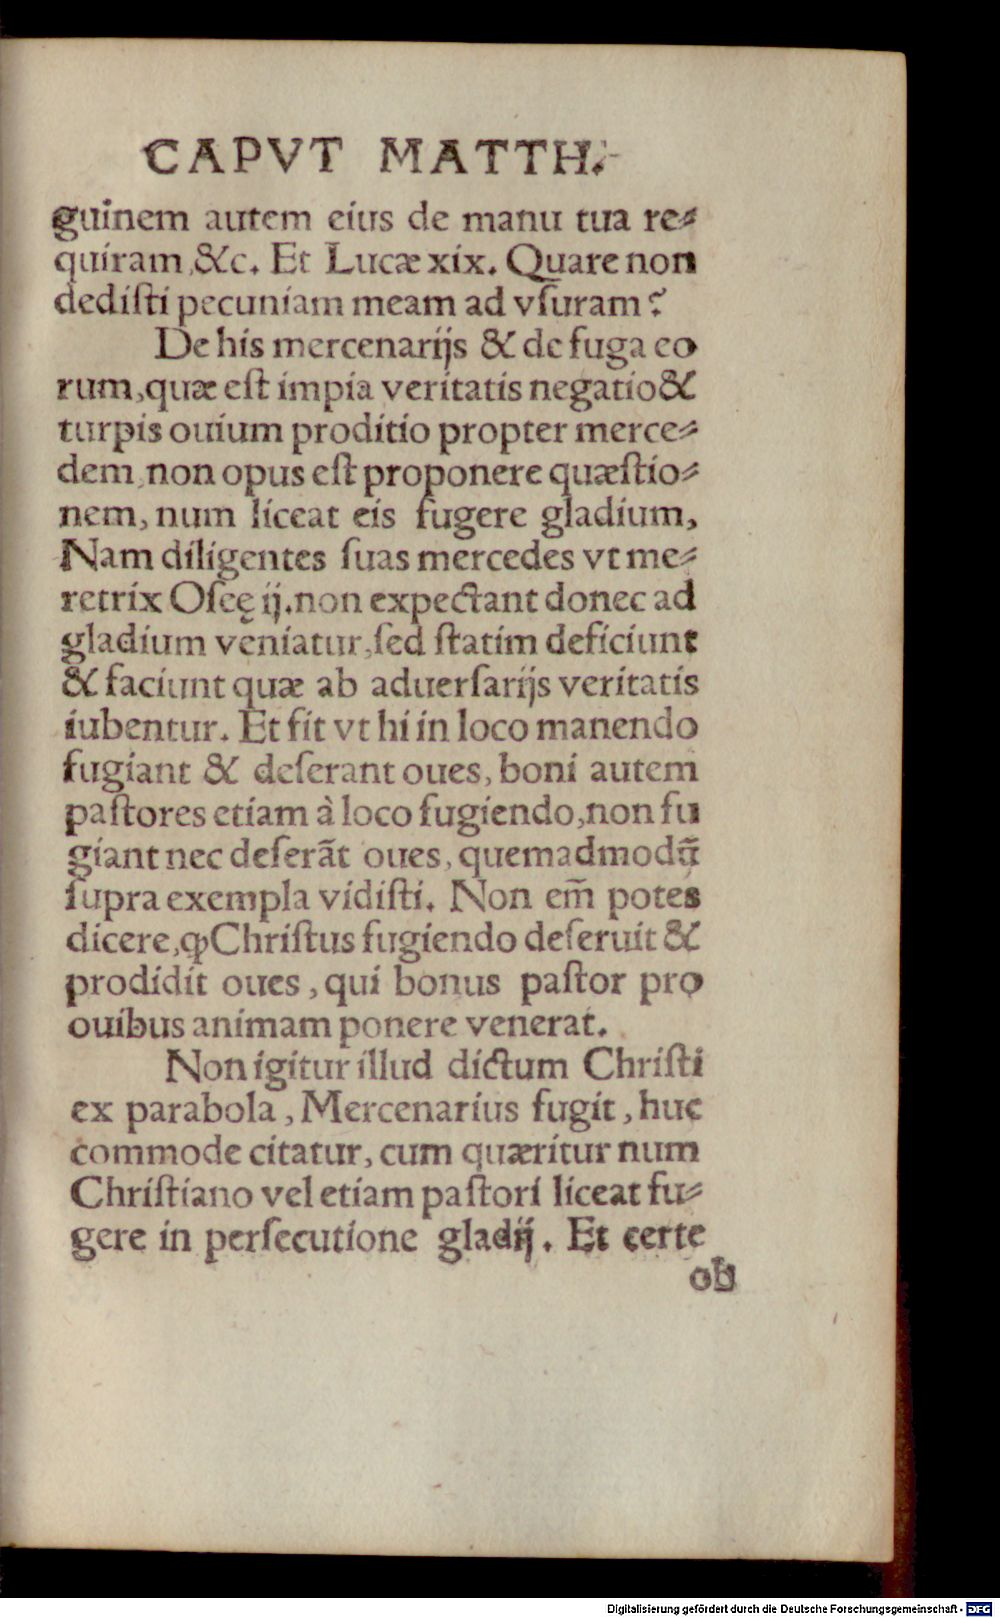 CAPVT MATTH.
guinem autem eius de manu tua re⸗
quiram,&c. Et Lucæ xix. Quare non
dediſti pecuniam meam ad vſuram?
De his mercenarijs & de fuga eo
rum,quæ eſt impia veritatis negatio&
turpis ouium proditio propter merce⸗
dem,non opus eſt proponere quæſtio⸗
nem, num liceat eis fugere gladium,
Nam diligentes ſuas mercedes vt me⸗
retrix Oſeę ij.non expectant donec ad
gladium veniatur,ſed ſtatim deficiunt
& faciunt quæ ab aduerſarijs veritatis
iubentur. Et fit vt hi in loco manendo
fugiant & deſerant oues, boni autem
paſtores etiam à loco fugiendo,non fu
giant nec deſerãt oues, quemadmodũ
ſupra exempla vidiſti. Non em̃ potes
dicere,ꝙ Chriſtus fugiendo deſeruit &
prodidit oues, qui bonus paſtor pro
ouibus animam ponere venerat.
Non igitur illud dictum Chriſti
ex parabola, Mercenarius fugit, huc
commode citatur, cum quæritur num
Chriſtiano vel etiam paſtori liceat fu⸗
gere in perſecutione gladij. Et certe
ob
Digitalisierung gefördert durch die Deutsche Forschungsgemeinschaft - DFG